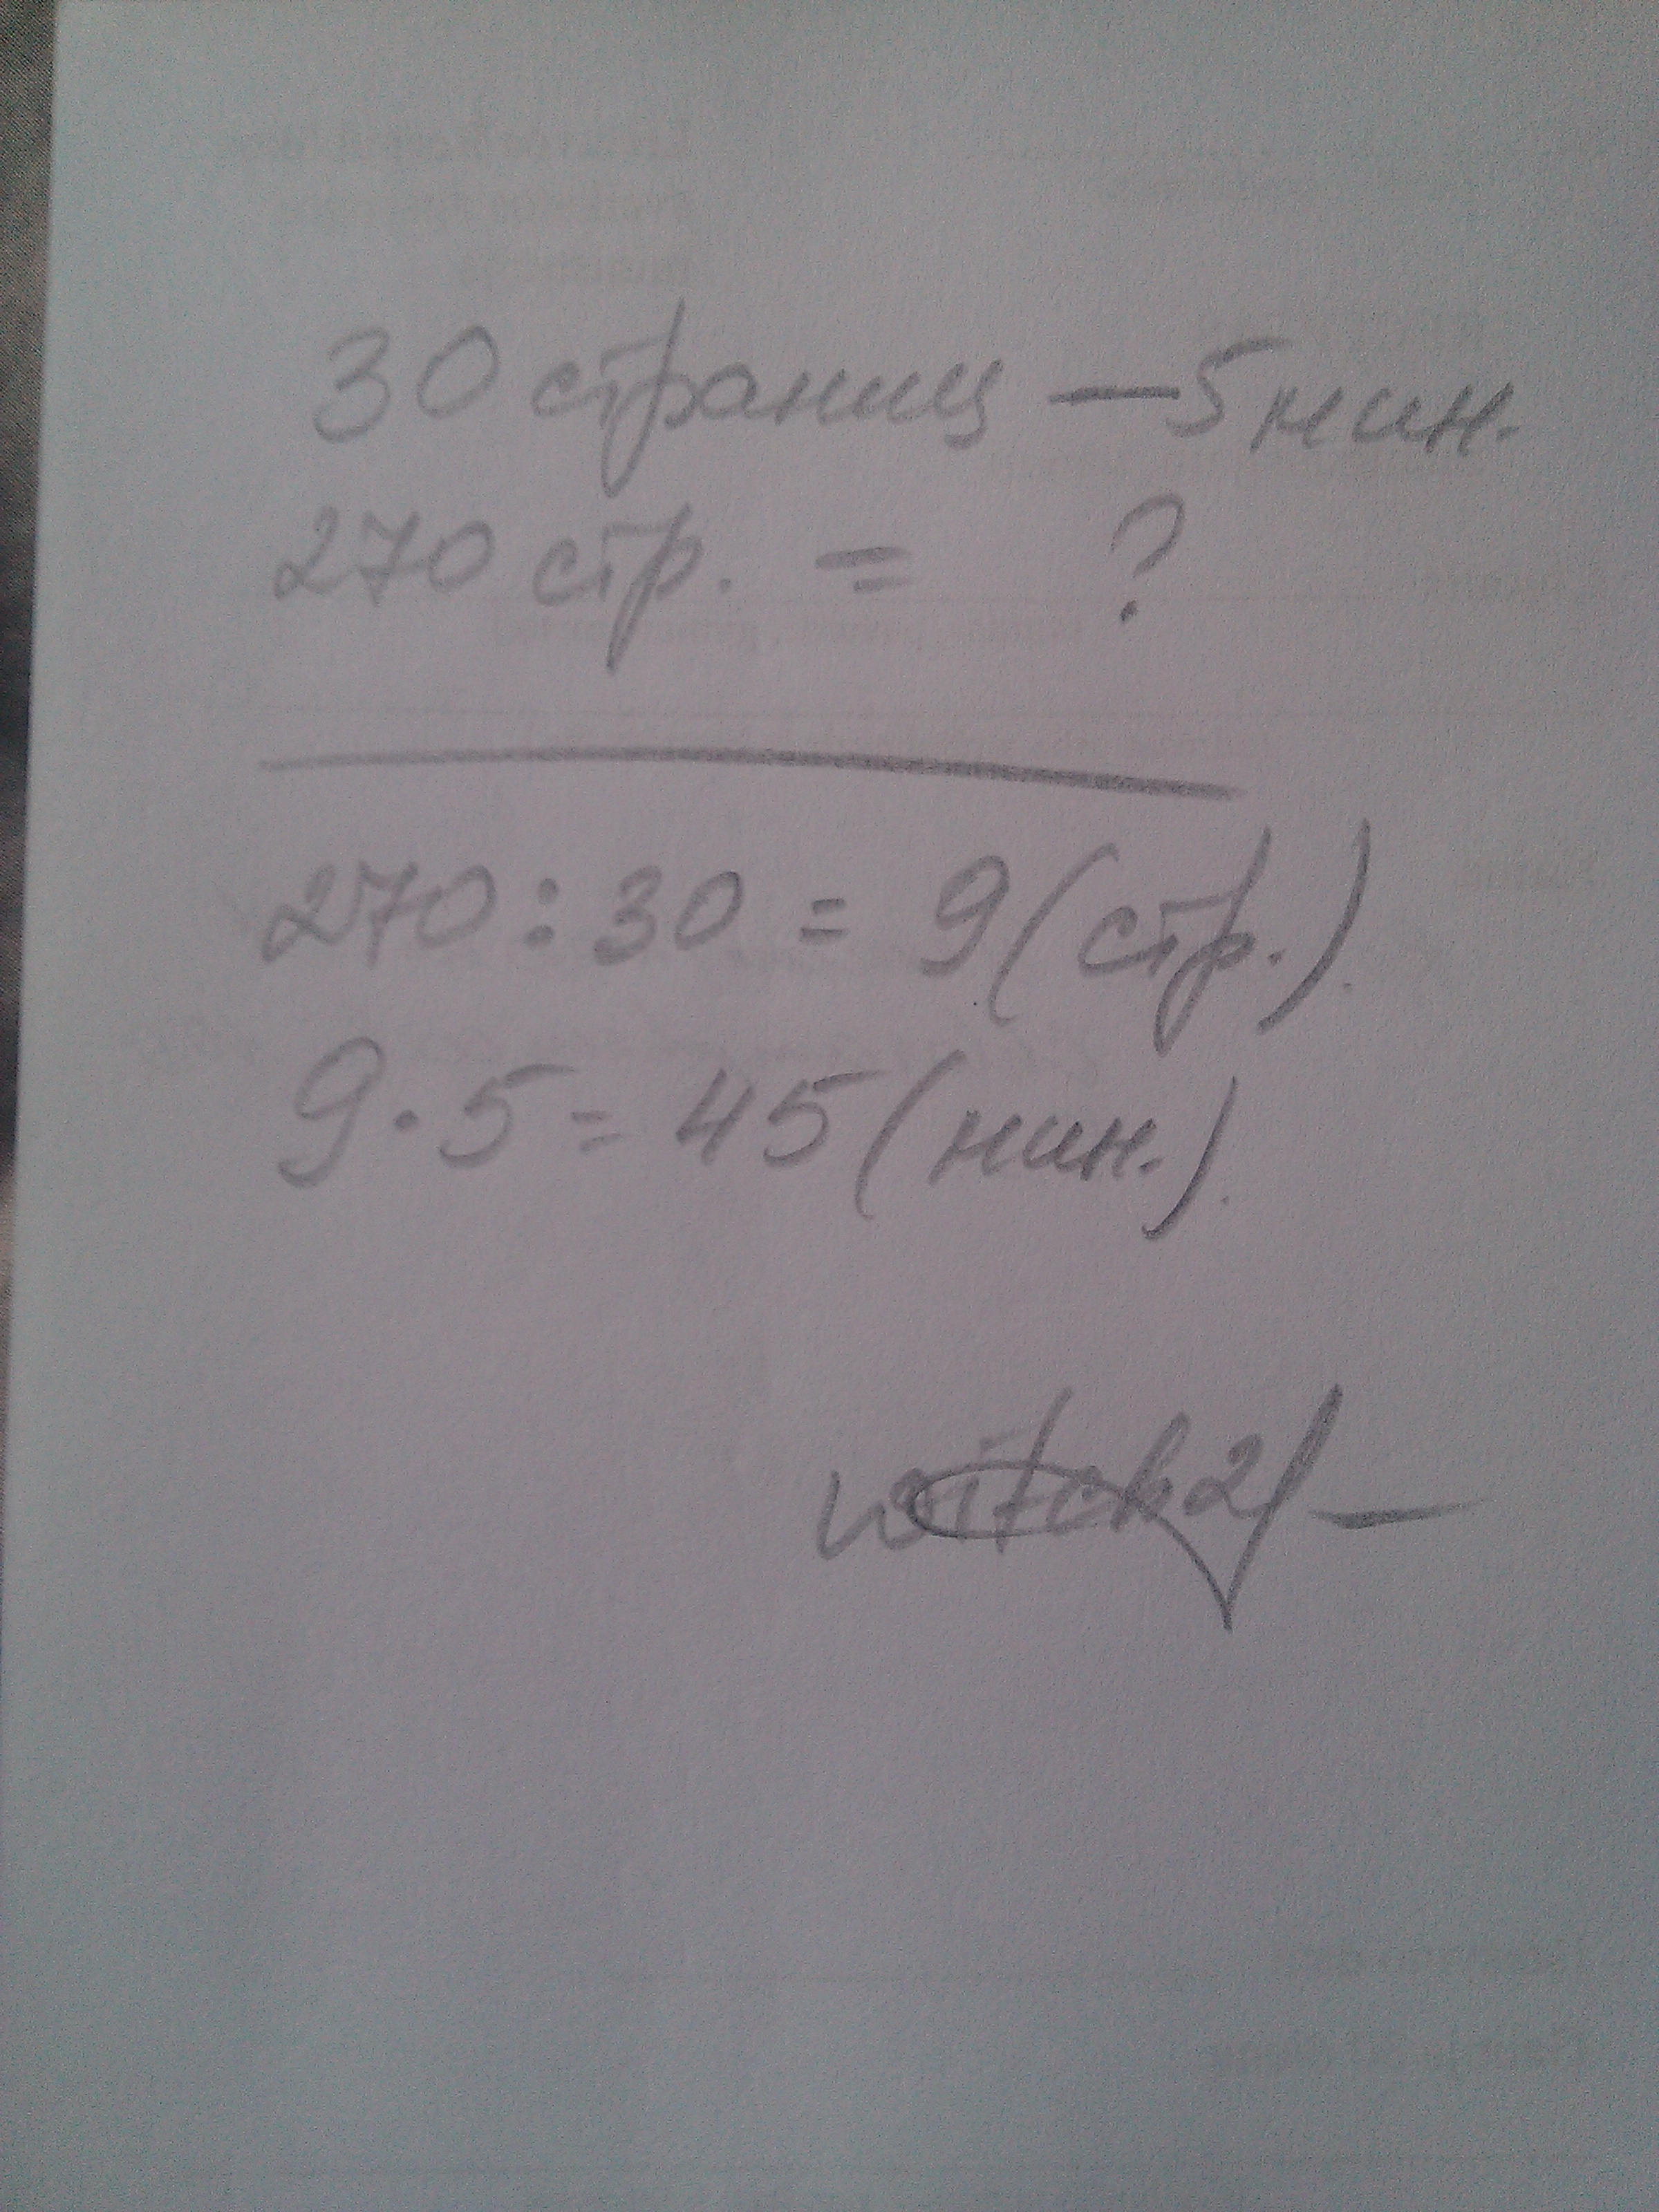 30 страниц — 5 мин.
270 стр. = ?
270 : 30 = 9 (стр.).
9 · 5 = 45 (мин.).